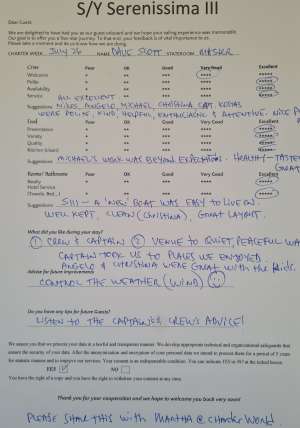 S/Y Serenissima III
Dear Guests
We are delighted to have had you as our guest onboard and we hope your sailing experience was memorable.
Our goal is to offer you a five-star journey. To that end, your feedback is of vital importance to us.
Please take a moment and let us know how we are doing.
CHARTER WEEK JULY 26 NAME DAVE SCOTT STATEROOM MASTER
Crew Poor OK Good Very Good Excellent
Welcome * ** *** **** *****
Polite * ** *** **** *****
Availability * ** *** **** *****
Service * ** *** **** *****
ALL EXCELLENT
Suggestions NIKOS, ANGELO, MICHAEL, CHRISTINA, CAPT. KOSTAS
WERE POLITE, KIND, HELPFUL, ENTHUSIASTIC & ATTENTIVE. NICE
Food Poor OK Good Very Good Excellent
Presentation * ** *** **** *****
Variety * ** *** **** *****
Quality * ** *** **** *****
Kitchen (clean) * ** *** **** *****
Suggestions MICHAEL'S WORK WAS BEYOND EXPECTATIONS - HEALTHY - TASTE
GREAT
Rooms/ Bathrooms Poor OK Good Very Good Excellent
Clean * ** *** **** *****
Hotel Service * ** *** **** *****
(Towels, Bed,..) * ** *** **** *****
Suggestions SIII - A 'NEW' BOAT WAS EASY TO LIVE ON.
WELL KEPT, CLEAN (CHRISTINA), GREAT LAYOUT.
What did you like during your day?
① CREW & CAPTAIN ② VENUE TO QUIET, PEACEFUL WA
CAPTAIN TOOK US TO PLACES WE ENJOYED
ANGELO & CHRISTINA WERE GREAT with the kids.
Advice for future improvements
CONTROL THE WEATHER (WIND)
Do you have any tips for future Guests?
LISTEN TO THE CAPTAIN & CREW'S ADVICE!
We assure you that we process your data in a lawful and transparent manner. We do keep appropriate technical and organisational safeguards that
assure the security of your data. After the anonymization and encryption of your personal data we intend to process them for a period of 5 years
for statistic and to improve our services. Your consent is an indispensable condition. You can indicate YES or NO at the tacked boxes.
YES NO
You have the right of a copy and you have the right to withdraw your consent in any time.
Thank you for your cooperation and we hope to welcome you back very soon!
PLEASE SHARE THIS with MARTHA @ Charter World